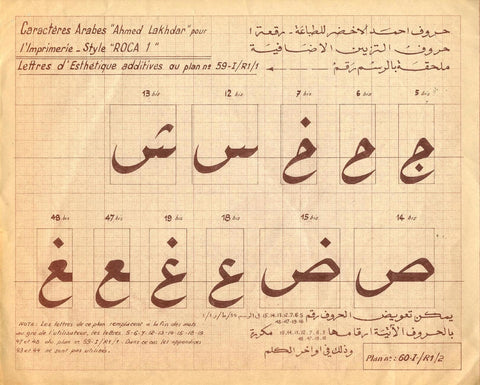 Caractères Arabes "Ahmed Lakhdar" pour
l'Imprimerie - Style "ROCA 1"
Lettres d'Esthétique additives au plan nº 59-I/R1/1
حروف احمد الاخضر للطباعة - رقعة 1
حروف التزيين الاضافية
ملحقة بالرسم رقم
13 bis 12 bis 7 bis 6 bis 5 bis
ش س خ ح ج
48 bis 47 bis 19 bis 18 bis 15 bis 14 bis
غ ع غ ع ض ص
NOTE: Les lettres de ce plan remplacent à la fin des mots
au gré de l'utilisateur, les lettres 5-6-7-12-13-14-15-18-19
47 et 48 du plan nº 59-I/R1/1. Dans ce cas les appendices
43 et 44 ne sont pas utilisés.
يمكن تعويض الحروف رقم
بالحروف الآتية ارقامها مكررة
وذلك في اواخر الكلم
Plan nº: 60-I/R1/2